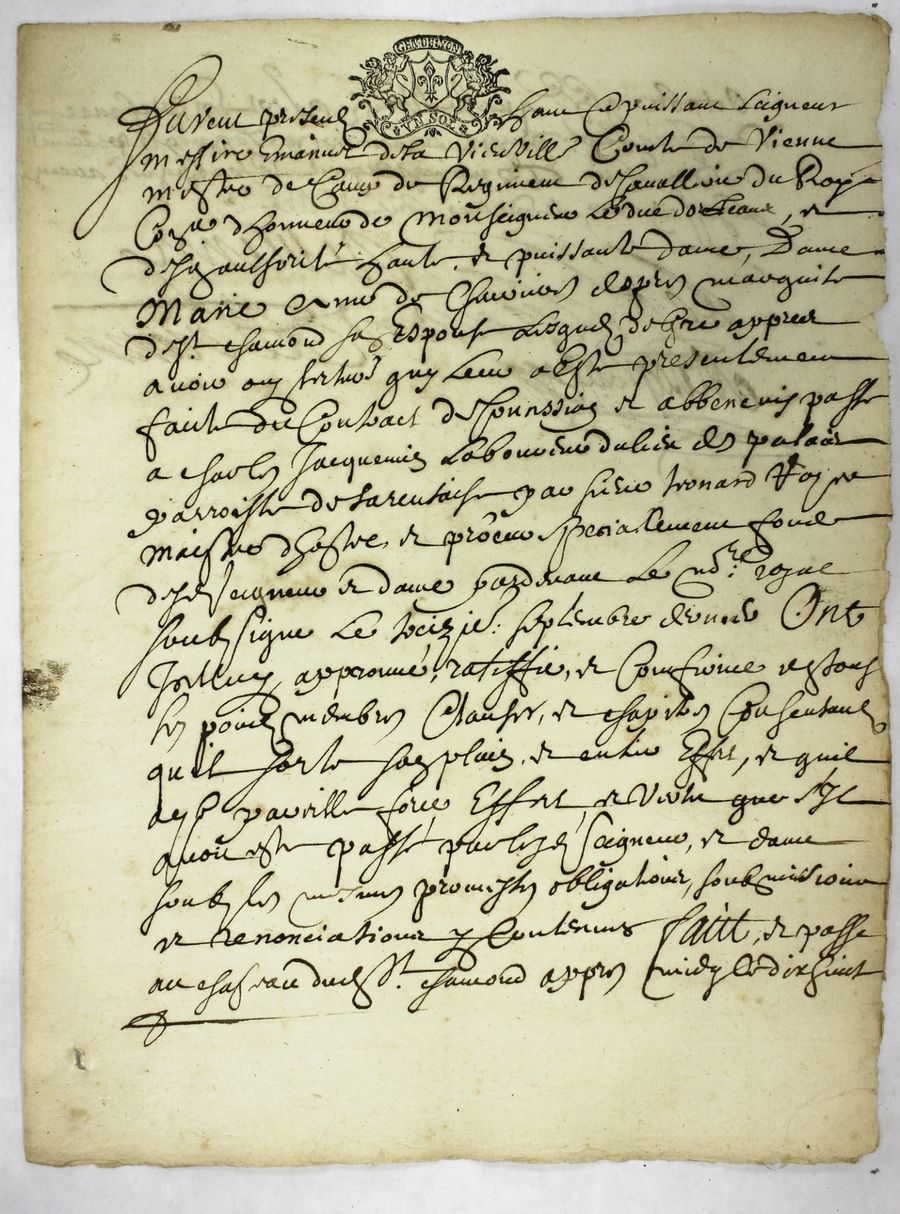 GEN DE LYON
VN SOL
Furent presents haut et puissant seigneur
messire Emanuel de la Vieuville Comte de Vienne
mestre de Camp du Regiment de Cavallerie du Roy
d'honneur de Monseigneur le duc dorleans, et
de sa authorité haute et puissante dame, Dame
Marie Anne de marquise
de st chamond son Espouse Lesquels de gre appres
avoir leur a Este presentement
faite du Contract de et abbenevis passé
a charles Jacquemin Laboureur du lieu des palais
parroisse de tarentaise par sieur Leonard
maistre et procur specialement fondé
desd seigneur et dame pardevant Le nore royal
soubsigné Le septembre dernier Ont
approuvé, ratiffié, et Confirmé et tous
les points membres Clauses, et chapitres Consentants
quil sorte son plain et entier Effet, et quil
aye pareille force Effect, et Vertu que s'Il
avoit este passé par lesd seigneur, et dame
soubs les mesmes promesses obligations, soubmissions
et renonciations y Contenues faict, et passé
au chasteau dud St. chamond appres midy le dixhuict